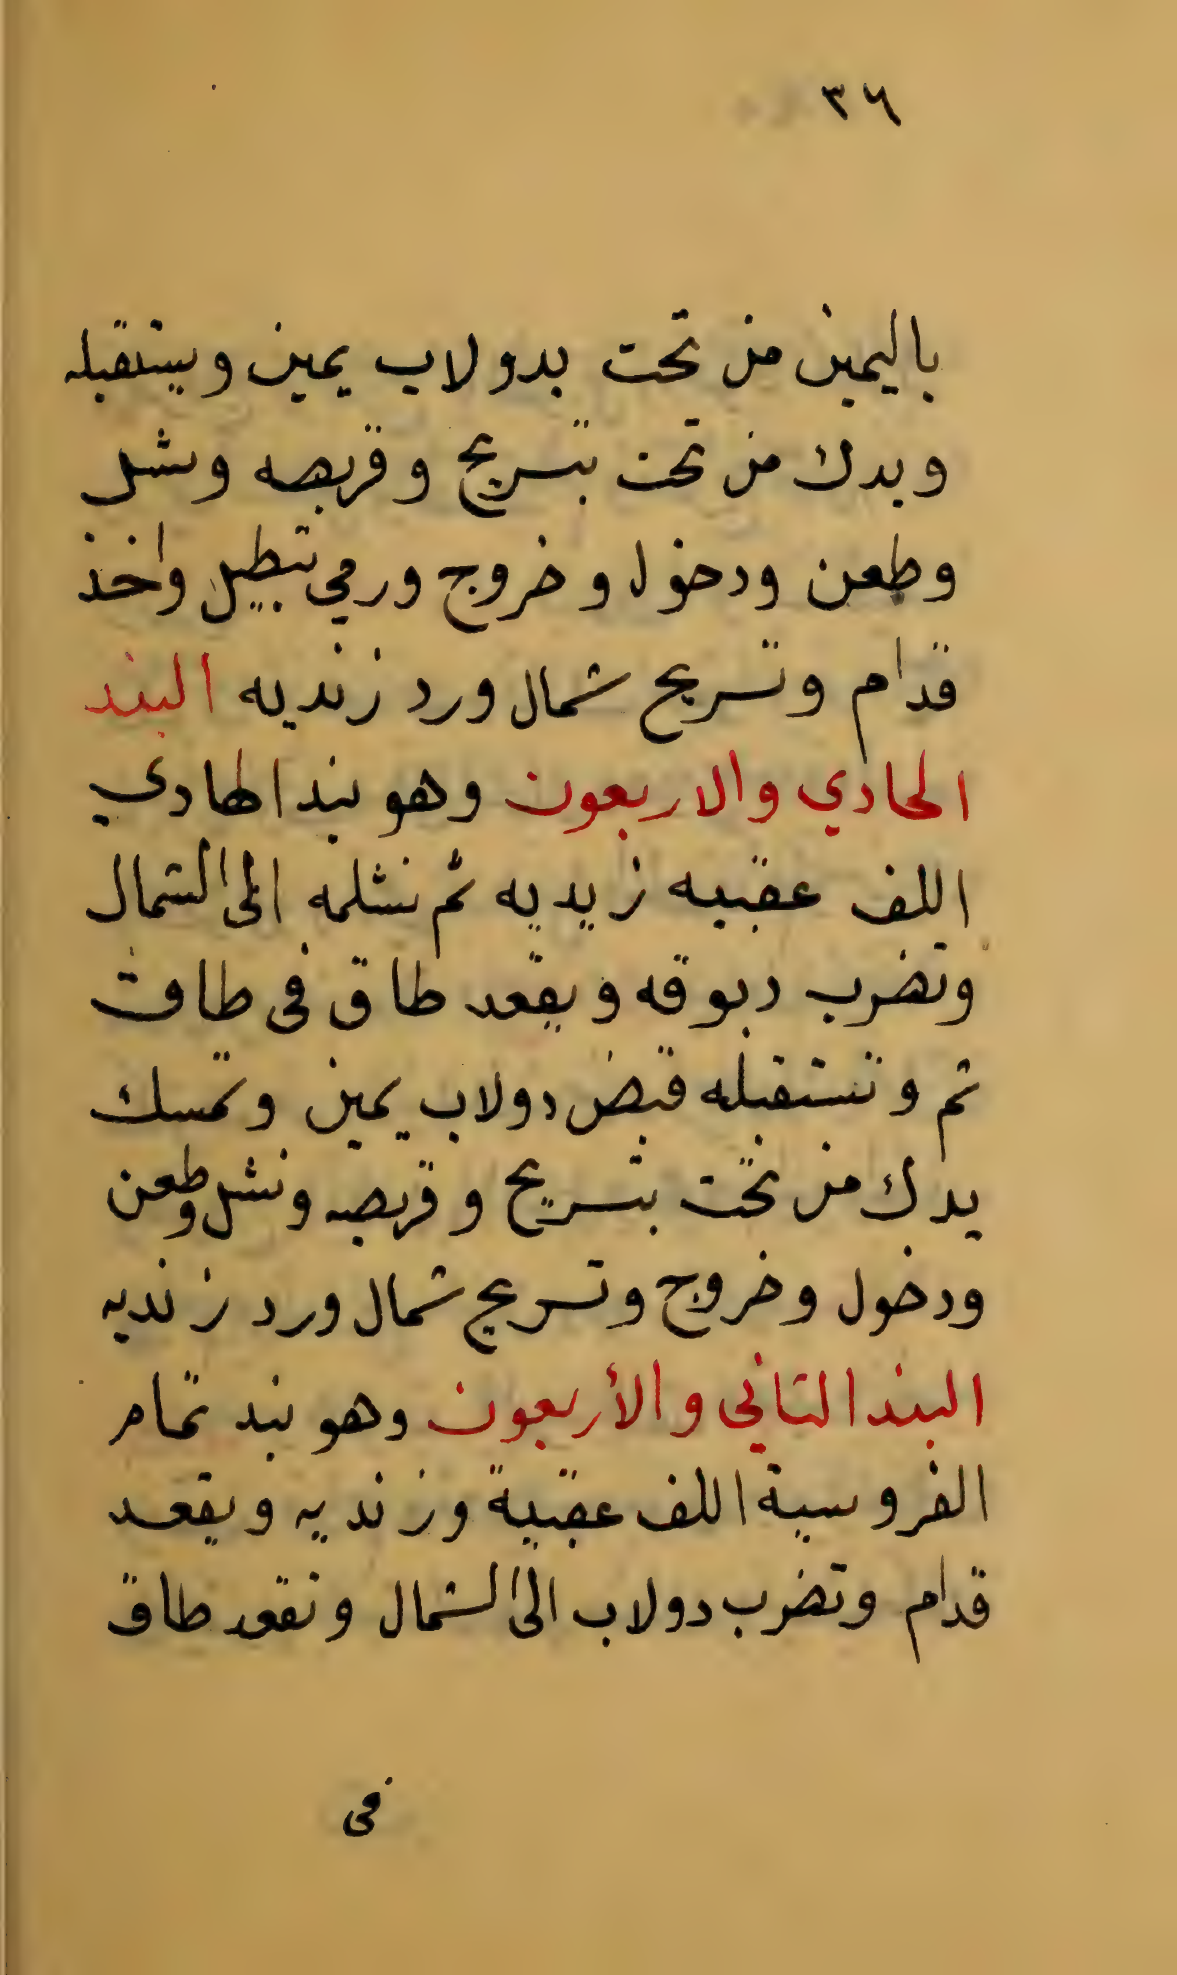 ٣٦
باليمين من تحت بدولاب يمين ويستقبله
ويدك من تحت بتسريح وقربصه ونشل
وطعن ودخول وخروج ورمي تبطيل واخذ
قدام وتسريح شمال ورد زنديه البند
الحادي والاربعون وهو بند الهادي
اللف عقبيه زيديه ثم نشلمه الى الشمال
وتضرب دبوقه ويقعد طاق في طاق
ثم وتستقبله قبض دولاب يمين وتمسك
يدك من تحت بتسريح وقربصه ونشل وطعن
ودخول وخروج وتسريح شمال ورد زنديه
البند الثاني والأربعون وهو بند تمام
الفروسية اللف عقبية وزنديه ويقعد
قدام وتضرب دولاب الى الشمال ونقعد طاق
في